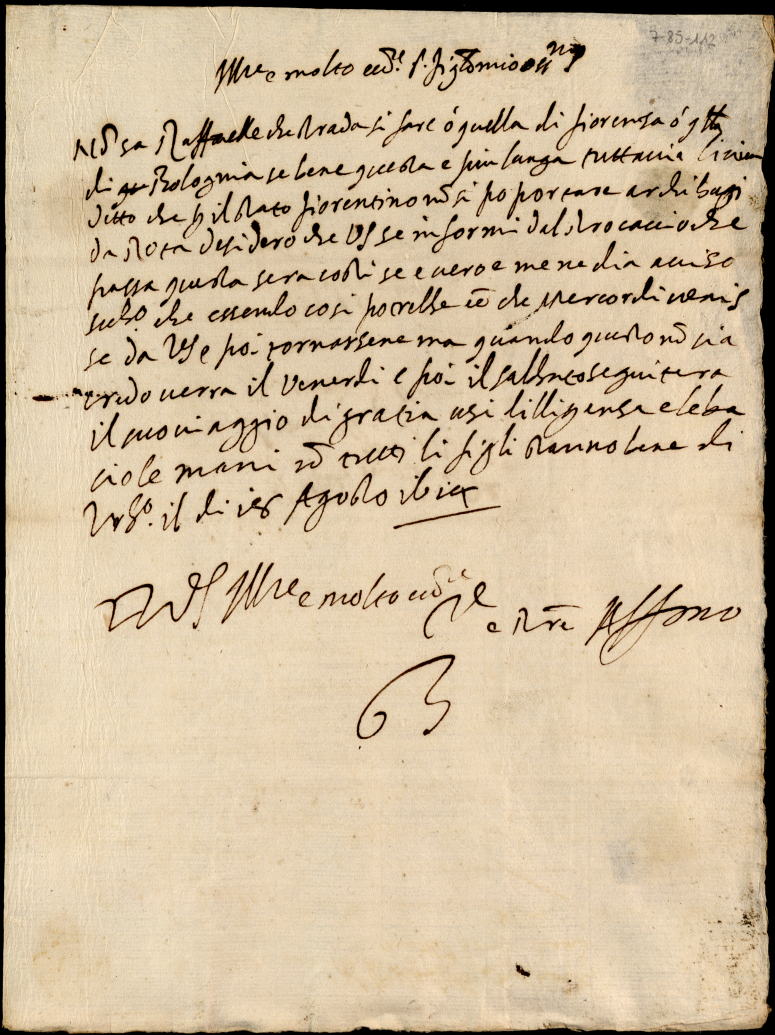 7-85-112
Ill.re e molto ecc.te s.r sig.r mio oss.mo
Nõ sa Raffaelle che strada si fare ó quella di fiorenza ó q.lla
di Bolognia se bene questa e piu lunga tuttavia li vien
ditto che p il stato fiorentino nõ si po portare archibugi
da Rota desidero che VS se informi dal strocaccio che
passa questa sera costi se e vero e me ne dia aviso
sub.o che essendo cosi potrebbe eẽ che Mercordi venis
se da VS e poi tornarsene ma quando questo nõ sia
credo verra il Venerdi e poi il sabbato seguitera
il suo viaggio di gratia usi dilligensa e le ba
cio le mani cõ tutti li figli stanno bene di
Urb.o il di Agosto
D VS Ill.re e molto ecc.te
e Aff.mo